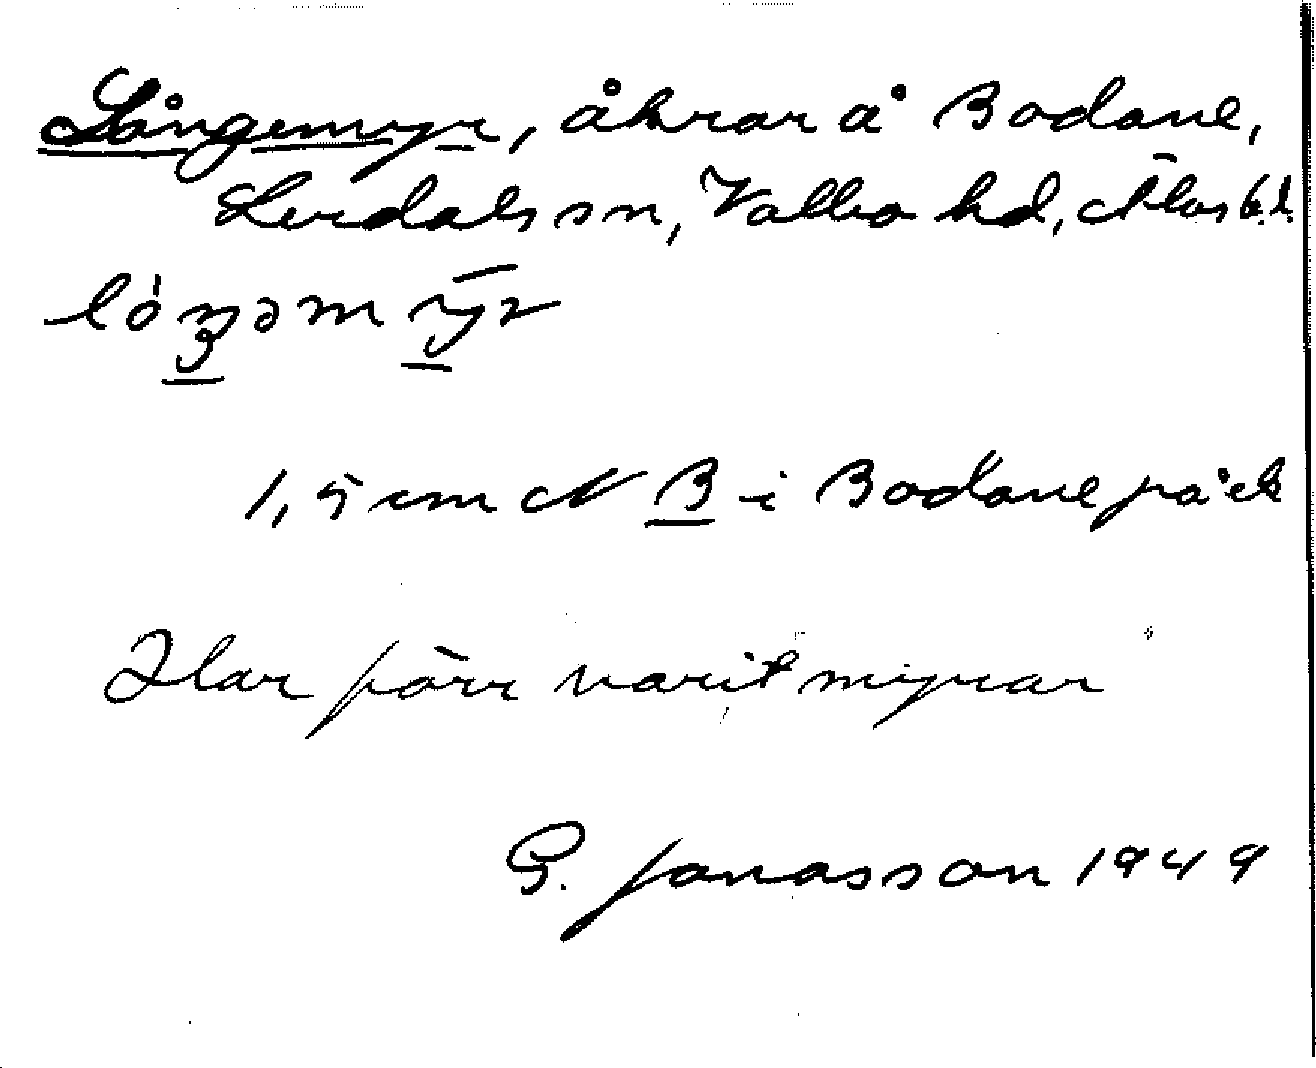 Långemyr, åkrar å Bodane,
Lerdals sn, Valbo hd, Älvsb.l.
1,5 cm N B i Bodane på ek
Har förr varit myrar
G. Jonasson 1949